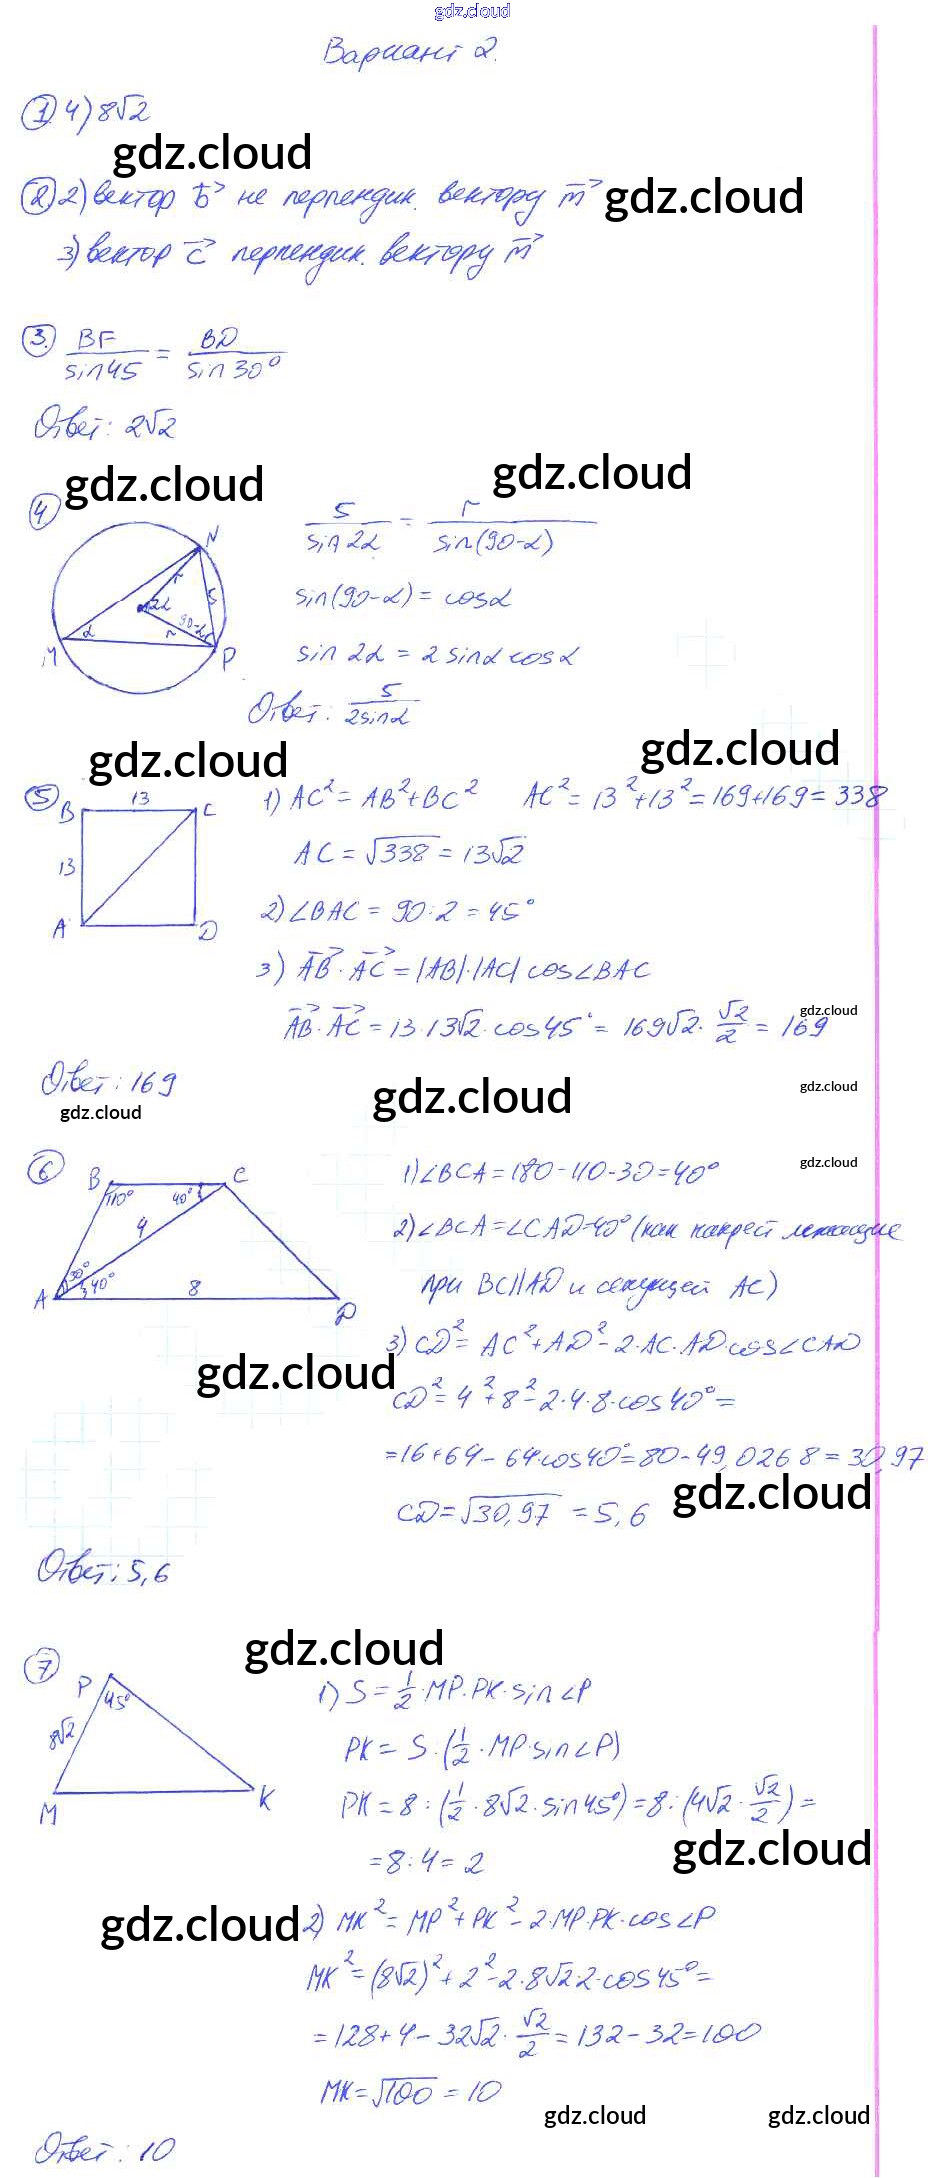 gdz.cloud
Вариант 2.
1. 4) 8√2
gdz.cloud
2 2) вектор b⃗ не перпендик. вектору m⃗
gdz.cloud
3) вектор c⃗ перпендик. вектору m⃗
3. BF/sin45 = BD/sin30°
Ответ: 2√2
gdz.cloud
gdz.cloud
4
5/sin2α = r/sin(90-α)
N
r
5
2α
90-α
α
r
M
P
sin(90-α) = cosα
sin 2α = 2 sinα cosα
Ответ: 5/2sinα
gdz.cloud
gdz.cloud
5
B 13 C
13
A D
1) AC² = AB² + BC² AC² = 13² + 13² = 169 + 169 = 338
AC = √338 = 13√2
2) ∠BAC = 90:2 = 45°
3) AB⃗ · AC⃗ = |AB|·|AC| cos∠BAC
AB⃗ · AC⃗ = 13·13√2·cos45° = 169√2 · √2/2 = 169
gdz.cloud
Ответ: 169
gdz.cloud
gdz.cloud
gdz.cloud
6
B C
110° 40°
4
30°
40°
A 8 D
1) ∠BCA = 180-110-30 = 40°
gdz.cloud
2) ∠BCA = ∠CAD = 40° (как накрест лежащие
при BC||AD и секущей AC)
3) CD² = AC² + AD² - 2·AC·AD·cos∠CAD
gdz.cloud
CD² = 4² + 8² - 2·4·8·cos40° =
= 16 + 64 - 64·cos40° = 80 - 49,0268 = 30,97
gdz.cloud
CD = √30,97 = 5,6
Ответ: 5,6
gdz.cloud
7
P
45°
8√2
M K
1) S = 1/2 · MP·PK·sin∠P
PK = S : (1/2 · MP·sin∠P)
PK = 8 : (1/2 · 8√2 · sin45°) = 8 : (4√2 · √2/2) =
gdz.cloud
= 8:4 = 2
gdz.cloud
2) MK² = MP² + PK² - 2·MP·PK·cos∠P
MK² = (8√2)² + 2² - 2·8√2·2·cos45° =
= 128 + 4 - 32√2 · √2/2 = 132 - 32 = 100
MK = √100 = 10
gdz.cloud
gdz.cloud
Ответ: 10